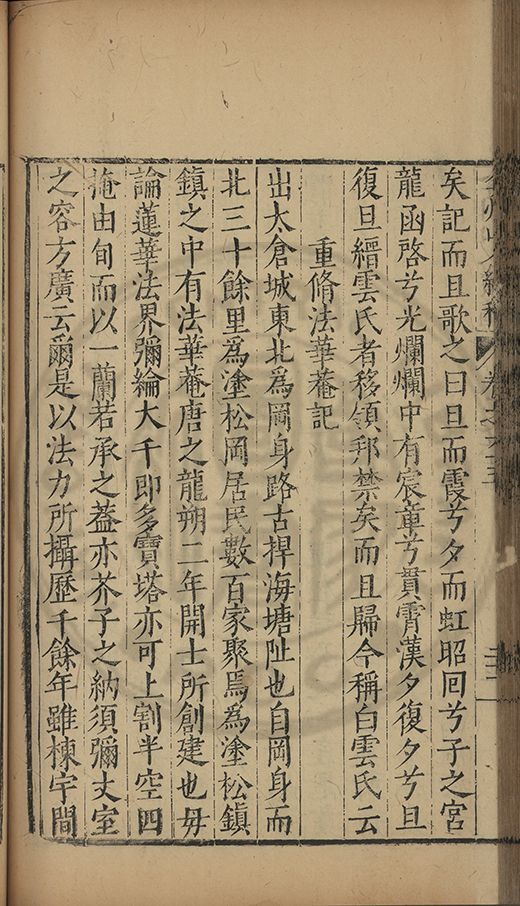 矣記而且歌之曰旦而霞兮夕而虹昭回兮子之宮
龍函啓兮光爛爛中有宸章兮貫霄漢夕復夕兮旦
復旦縉雲氏者移領邦禁矣而且歸今稱白雲氏云
重脩法華菴記
出太倉城東北為岡身路古捍海塘阯也自岡身而
北三十餘里為塗松岡居民數百家聚焉為塗松鎮
鎮之中有法華菴唐之龍朔二年開士所創建也毋
論蓮華法界彌綸大千即多寶塔亦可上割半空四
掩由旬而以一蘭若承之葢亦芥子之納須彌丈室
之容方廣云爾是以法力所攝歷千餘年雖棟宇間